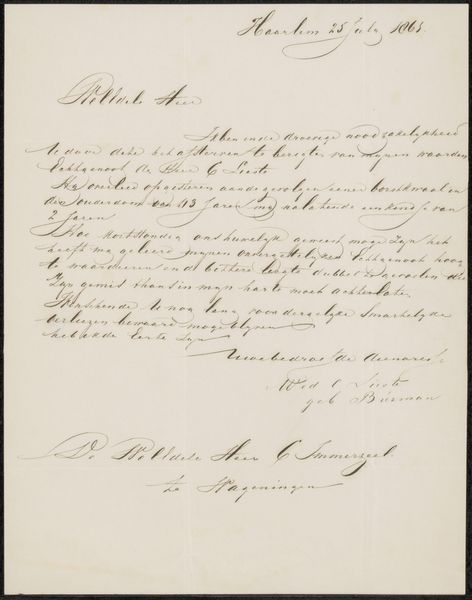 Haarlem 25 July 1861.
WelEdele Heer
Ik ben in de droevige noodzakelijkheid
te dove deze het afsterven te berigten van mynen waarden
Echtgenoot de Heer C Lieste
Hy overleed op gisteren aan de gevolgen eener borstkwaal in
den ouderdom van 43 Jaren my nalatende een kindje van
2 Jaren
Hoe kortstondig ons huwelyk geweest moge zyn het
heeft my geleerd mynen onvergetelyken Echtgenoot hoog
te waarderen en de bittere leegte dubbel te gevoelen die
Zyn gemis thans in myn hart moet achterlaten
Wenschende U nog lang voor dergelyke smartelyke
verliezen bewaard moge blyven
heb ik de Eer te Zyn
Uwe bedroefde dienaresse
Wed C Lieste
geb Bürman
De WelEdele Heer C Immerzeel.
te Wageningen